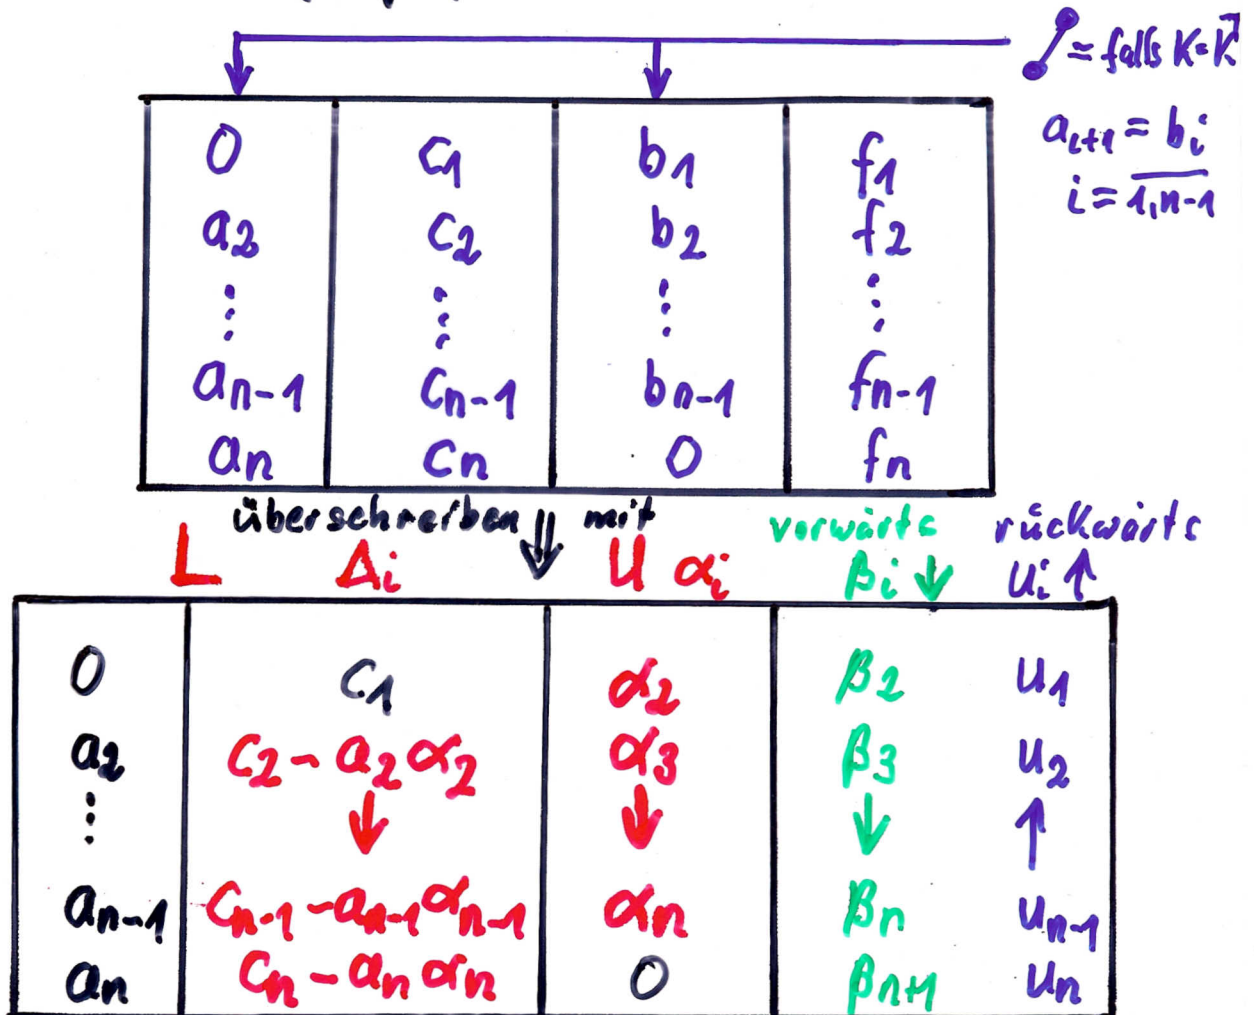 ≃ falls K=K⃗
a_{i+1} = b_i
i = \overline{1,n-1}
0 c_1 b_1 f_1
a_2 c_2 b_2 f_2
⋮ ⋮ ⋮ ⋮
a_{n-1} c_{n-1} b_{n-1} f_{n-1}
a_n c_n 0 f_n
überschreiben ⇓ mit vorwärts rückwärts
L Δ_i U α_i β_i ↓ u_i ↑
0 c_1 α_2 β_2 u_1
a_2 c_2 - a_2 α_2 α_3 β_3 u_2
⋮ ↓ ↓ ↓ ↑
a_{n-1} c_{n-1} - a_{n-1} α_{n-1} α_n β_n u_{n-1}
a_n c_n - a_n α_n 0 β_{n+1} u_n